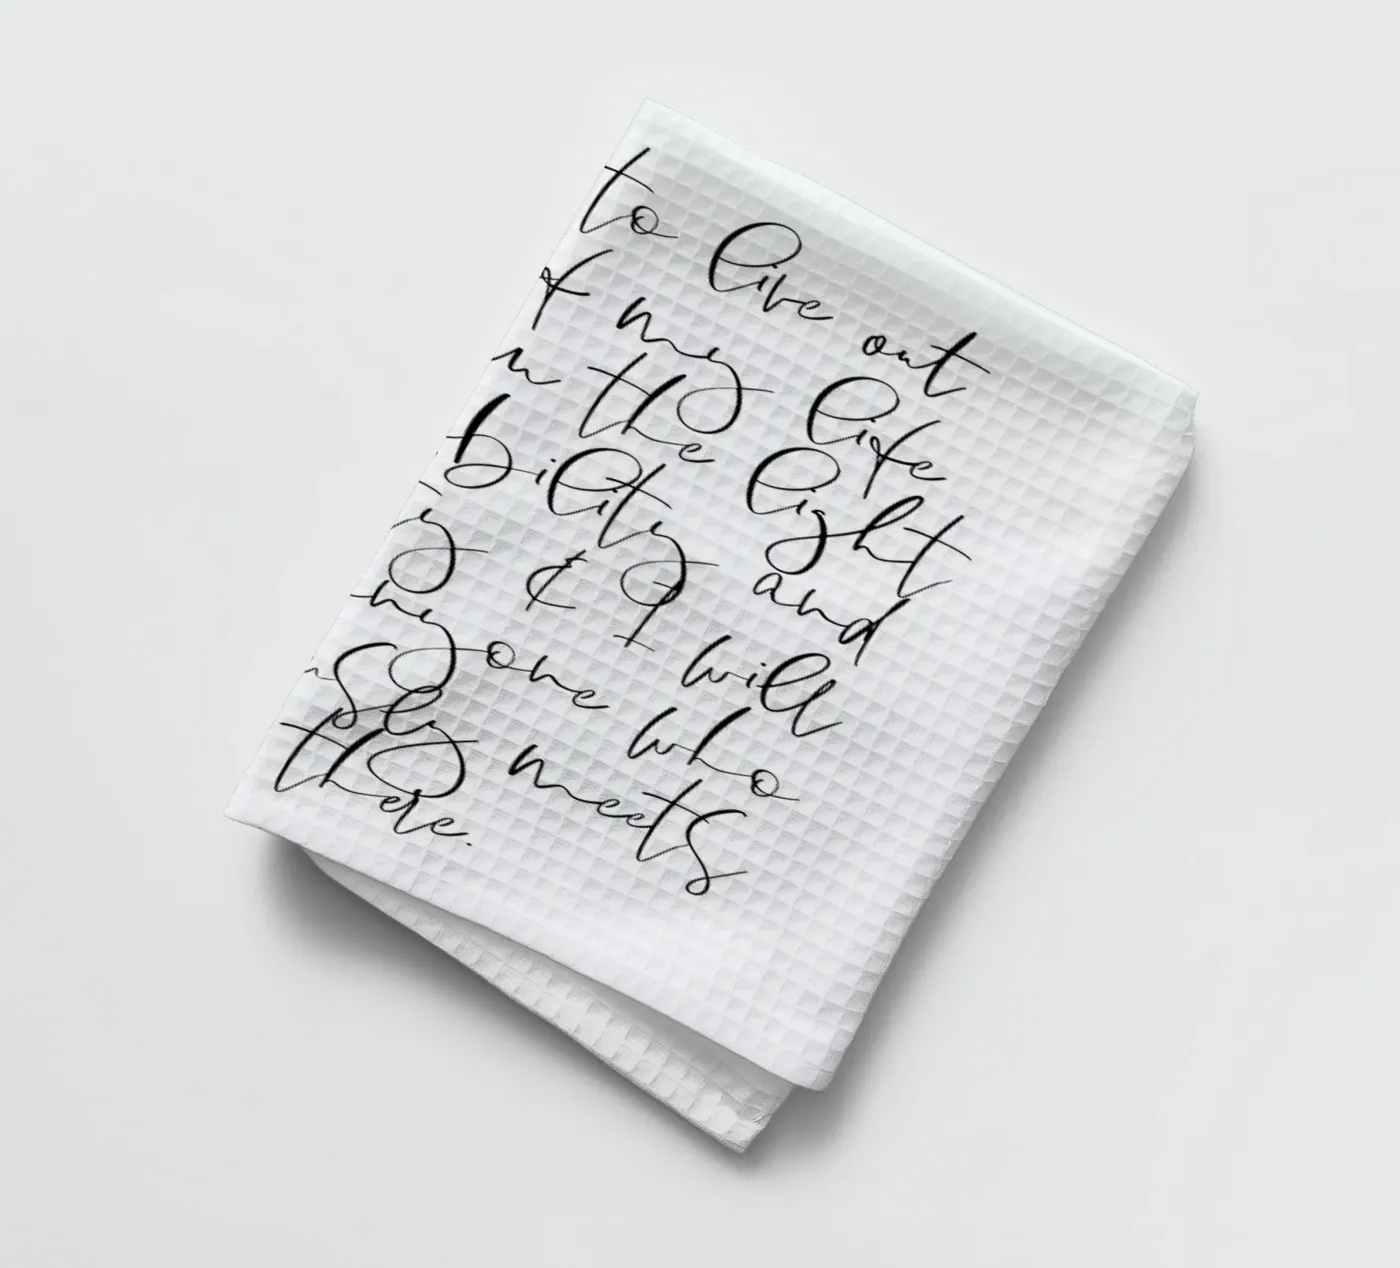 to live out
f my life
n the light
bility and
y & I will
nyone who
sly meets
there.